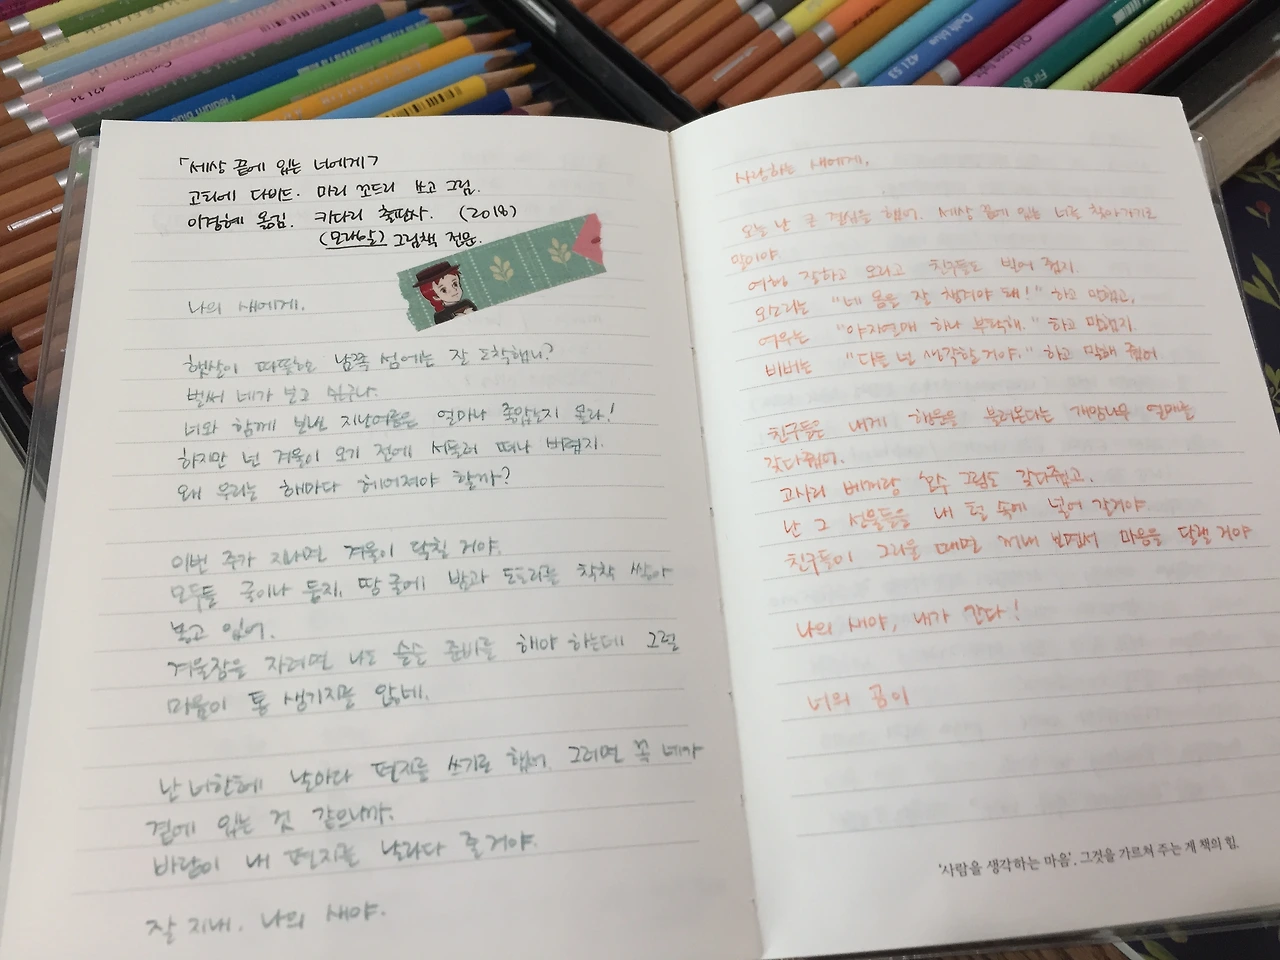 「세상 끝에 있는 너에게」
고티에 다비드. 마리 꼬드리 쓰고 그림.
이경혜 옮김. 카다리 출판사. (2018)
(모래알) 그림책 전문.
나의 새에게.
햇살이 따뜻한 남쪽 섬에는 잘 도착했니?
벌써 네가 보고 싶구나.
너와 함께 보낸 지난여름은 얼마나 좋았는지 몰라!
하지만 넌 겨울이 오기 전에 서둘러 떠나 버렸지.
왜 우리는 해마다 헤어져야 할까?
이번 주가 지나면 겨울이 닥칠 거야.
모두들 굴이나 둥지, 땅굴에 밤과 도토리를 착착 쌓아
놓고 있어.
겨울잠을 자려면 나도 슬슬 준비를 해야 하는데 그럴
마음이 통 생기지를 않네.
난 너한테 날마다 편지를 쓰기로 했어. 그러면 꼭 네가
곁에 있는 것 같으니까.
바람이 내 편지를 날라다 줄거야.
잘 지내. 나의 새야.
사랑하는 새에게.
오늘 난 큰 결심을 했어. 세상 끝에 있는 너를 찾아가기로
말이야.
여행 잘하고 오라고 친구들도 빌어 줬지.
오소리는 "네 몸을 잘 챙겨야 돼!" 하고 말했고,
여우는 "야자열매 하나 부탁해." 하고 말했지.
비버는 "다들 널 생각할거야." 하고 말해 줬어
친구들은 내게 행운을 불러온다는 개암나무 열매를
갖다줬어.
고사리 베개랑 호수 그림도 갖다줬고.
난 그 선물들을 내 털 속에 넣어 갈거야.
친구들이 그리울 때면 꺼내 보면서 마음을 달랠 거야
나의 새야, 내가 간다!
너의 곰이
'사람을 생각하는 마음', 그것을 가르쳐 주는 게 책의 힘.
Medium blue
421 34
Delft blue
421 53